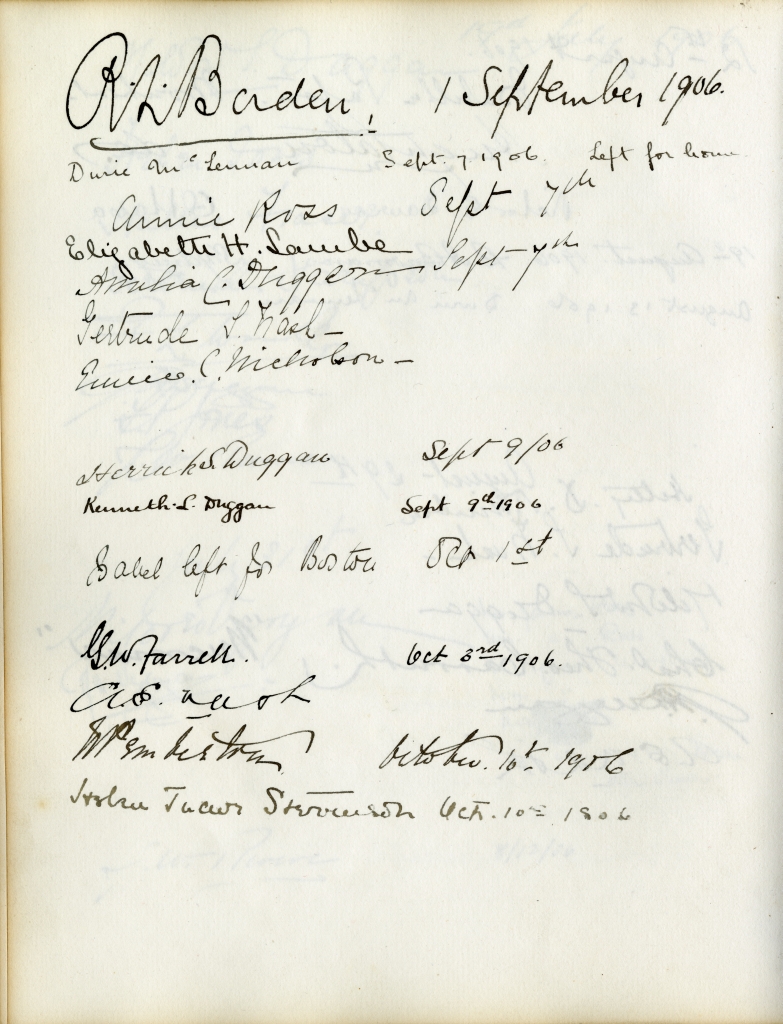 R. L. Borden, 1 September 1906.
Durie McLennan Sept. 7 1906. Left for home
Annie Ross Sept 7th
Elizabeth H. Lambe
Amelia C. Duggan Sept 7th
Gertrude S. Nash
Eunice. C. Nicholson
Herrick S. Duggan Sept 9/06
Kenneth. L. Duggan Sept 9th 1906
Isabel left for Boston Oct 1st
G. W. Farrell. Oct 3rd 1906.
A. E. Nash
October. 10th 1906
Stevenson Oct. 10th 1906